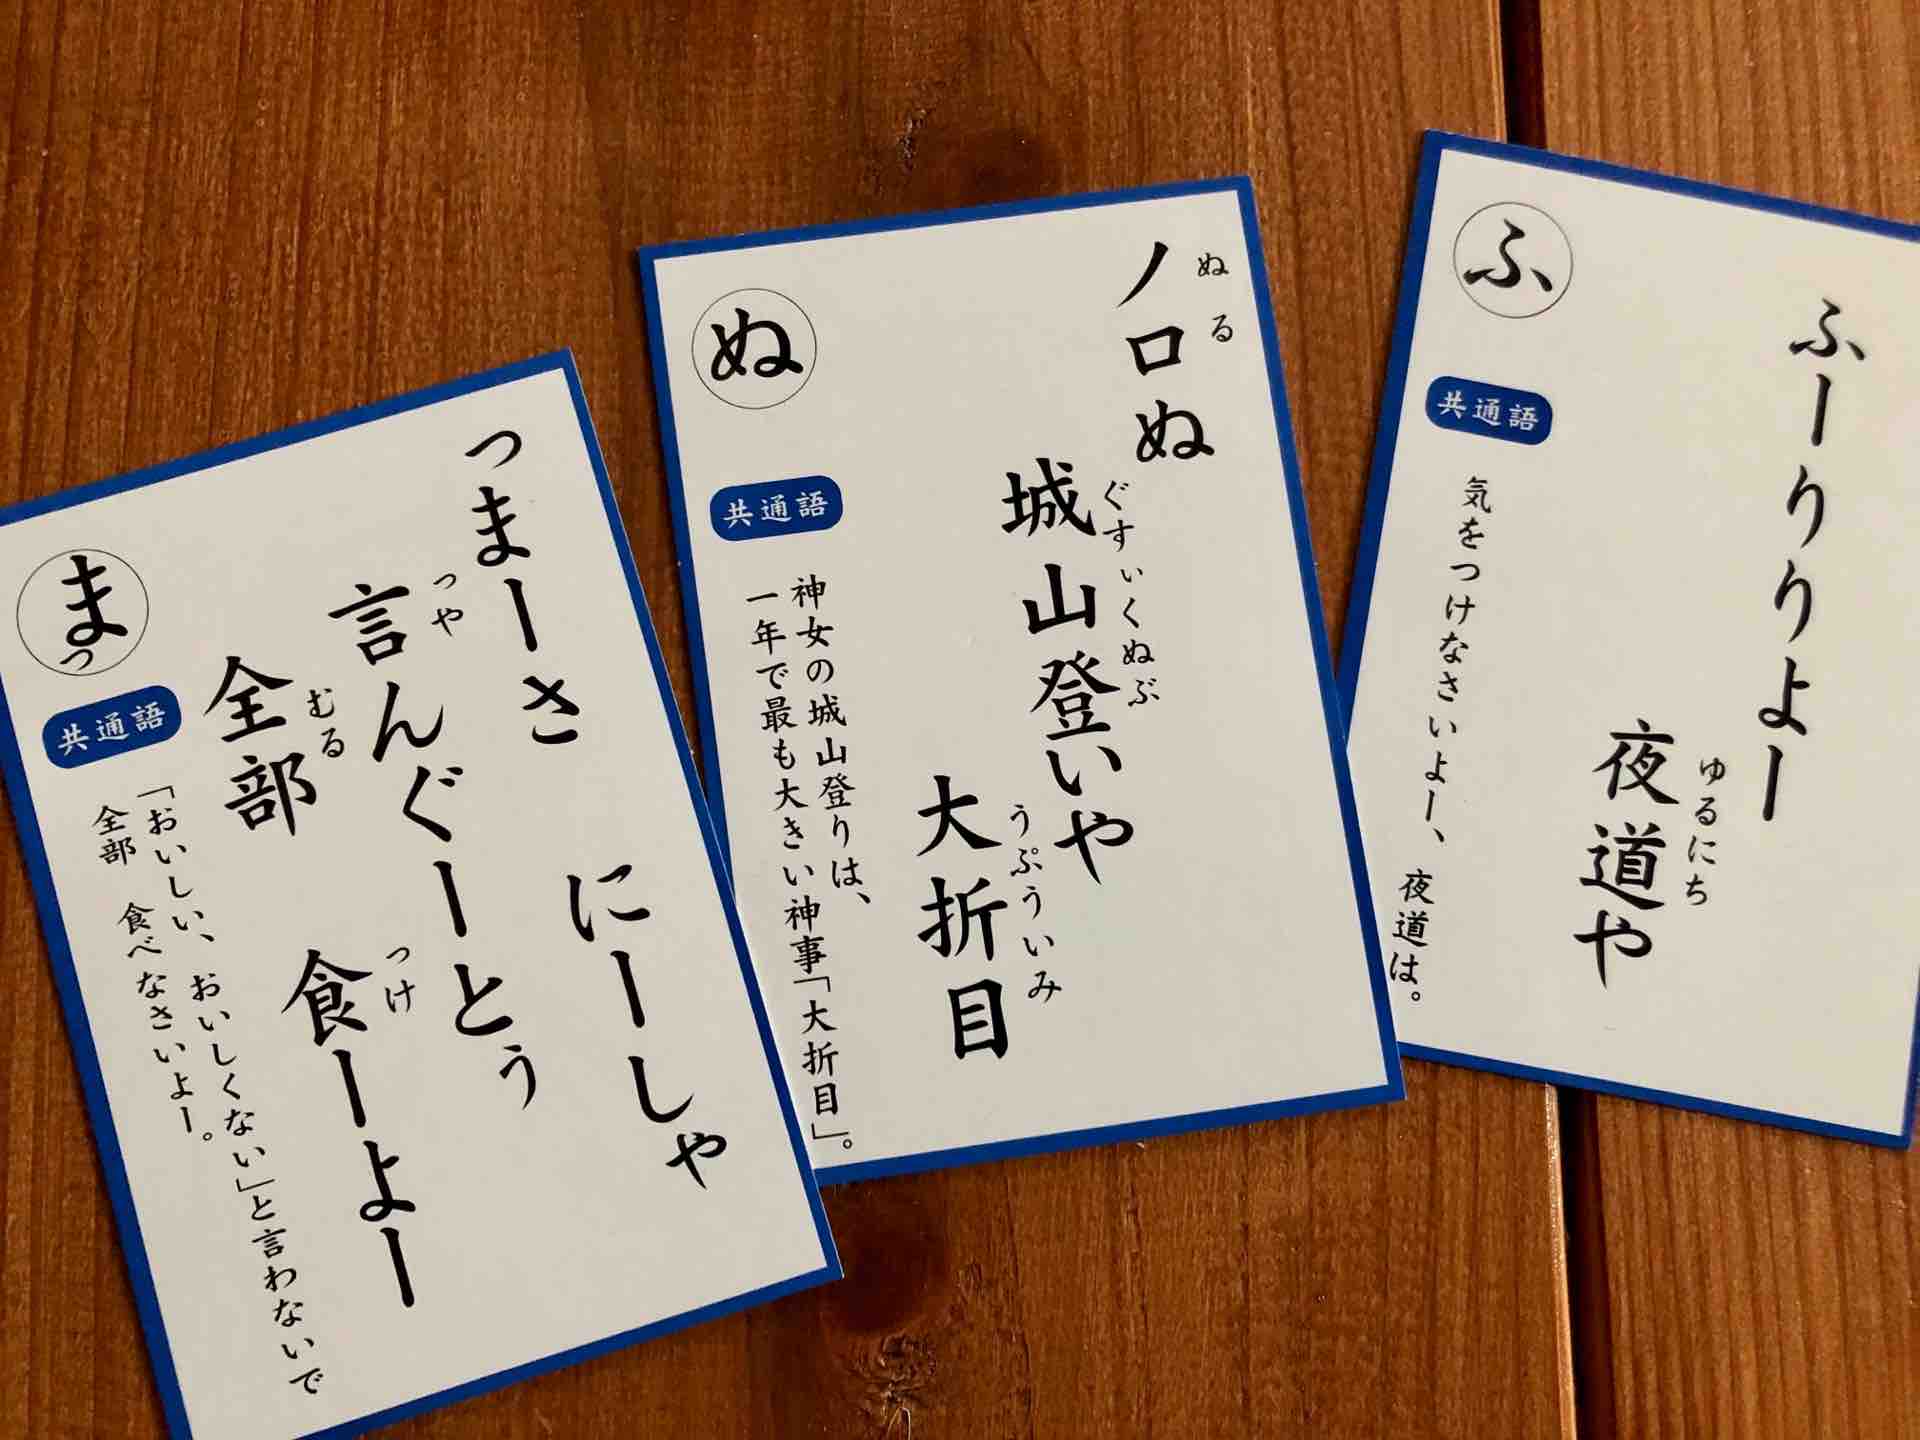 っまーさ　にーしゃ
っや
言んぐーとぅ
むる　っけ
全部　食ーよー
まっ
共通語
「おいしい、おいしくない」と言わないで
全部　食べなさいよー。
ぬる
ノロぬ
ぐすぃくぬぶ
城山登いや
うぷういみ
大折目
ぬ
共通語
神女の城山登りは、
一年で最も大きい神事「大折目」。
ふーりりよー
ゆるにち
夜道や
ふ
共通語
気をつけなさいよー、夜道は。